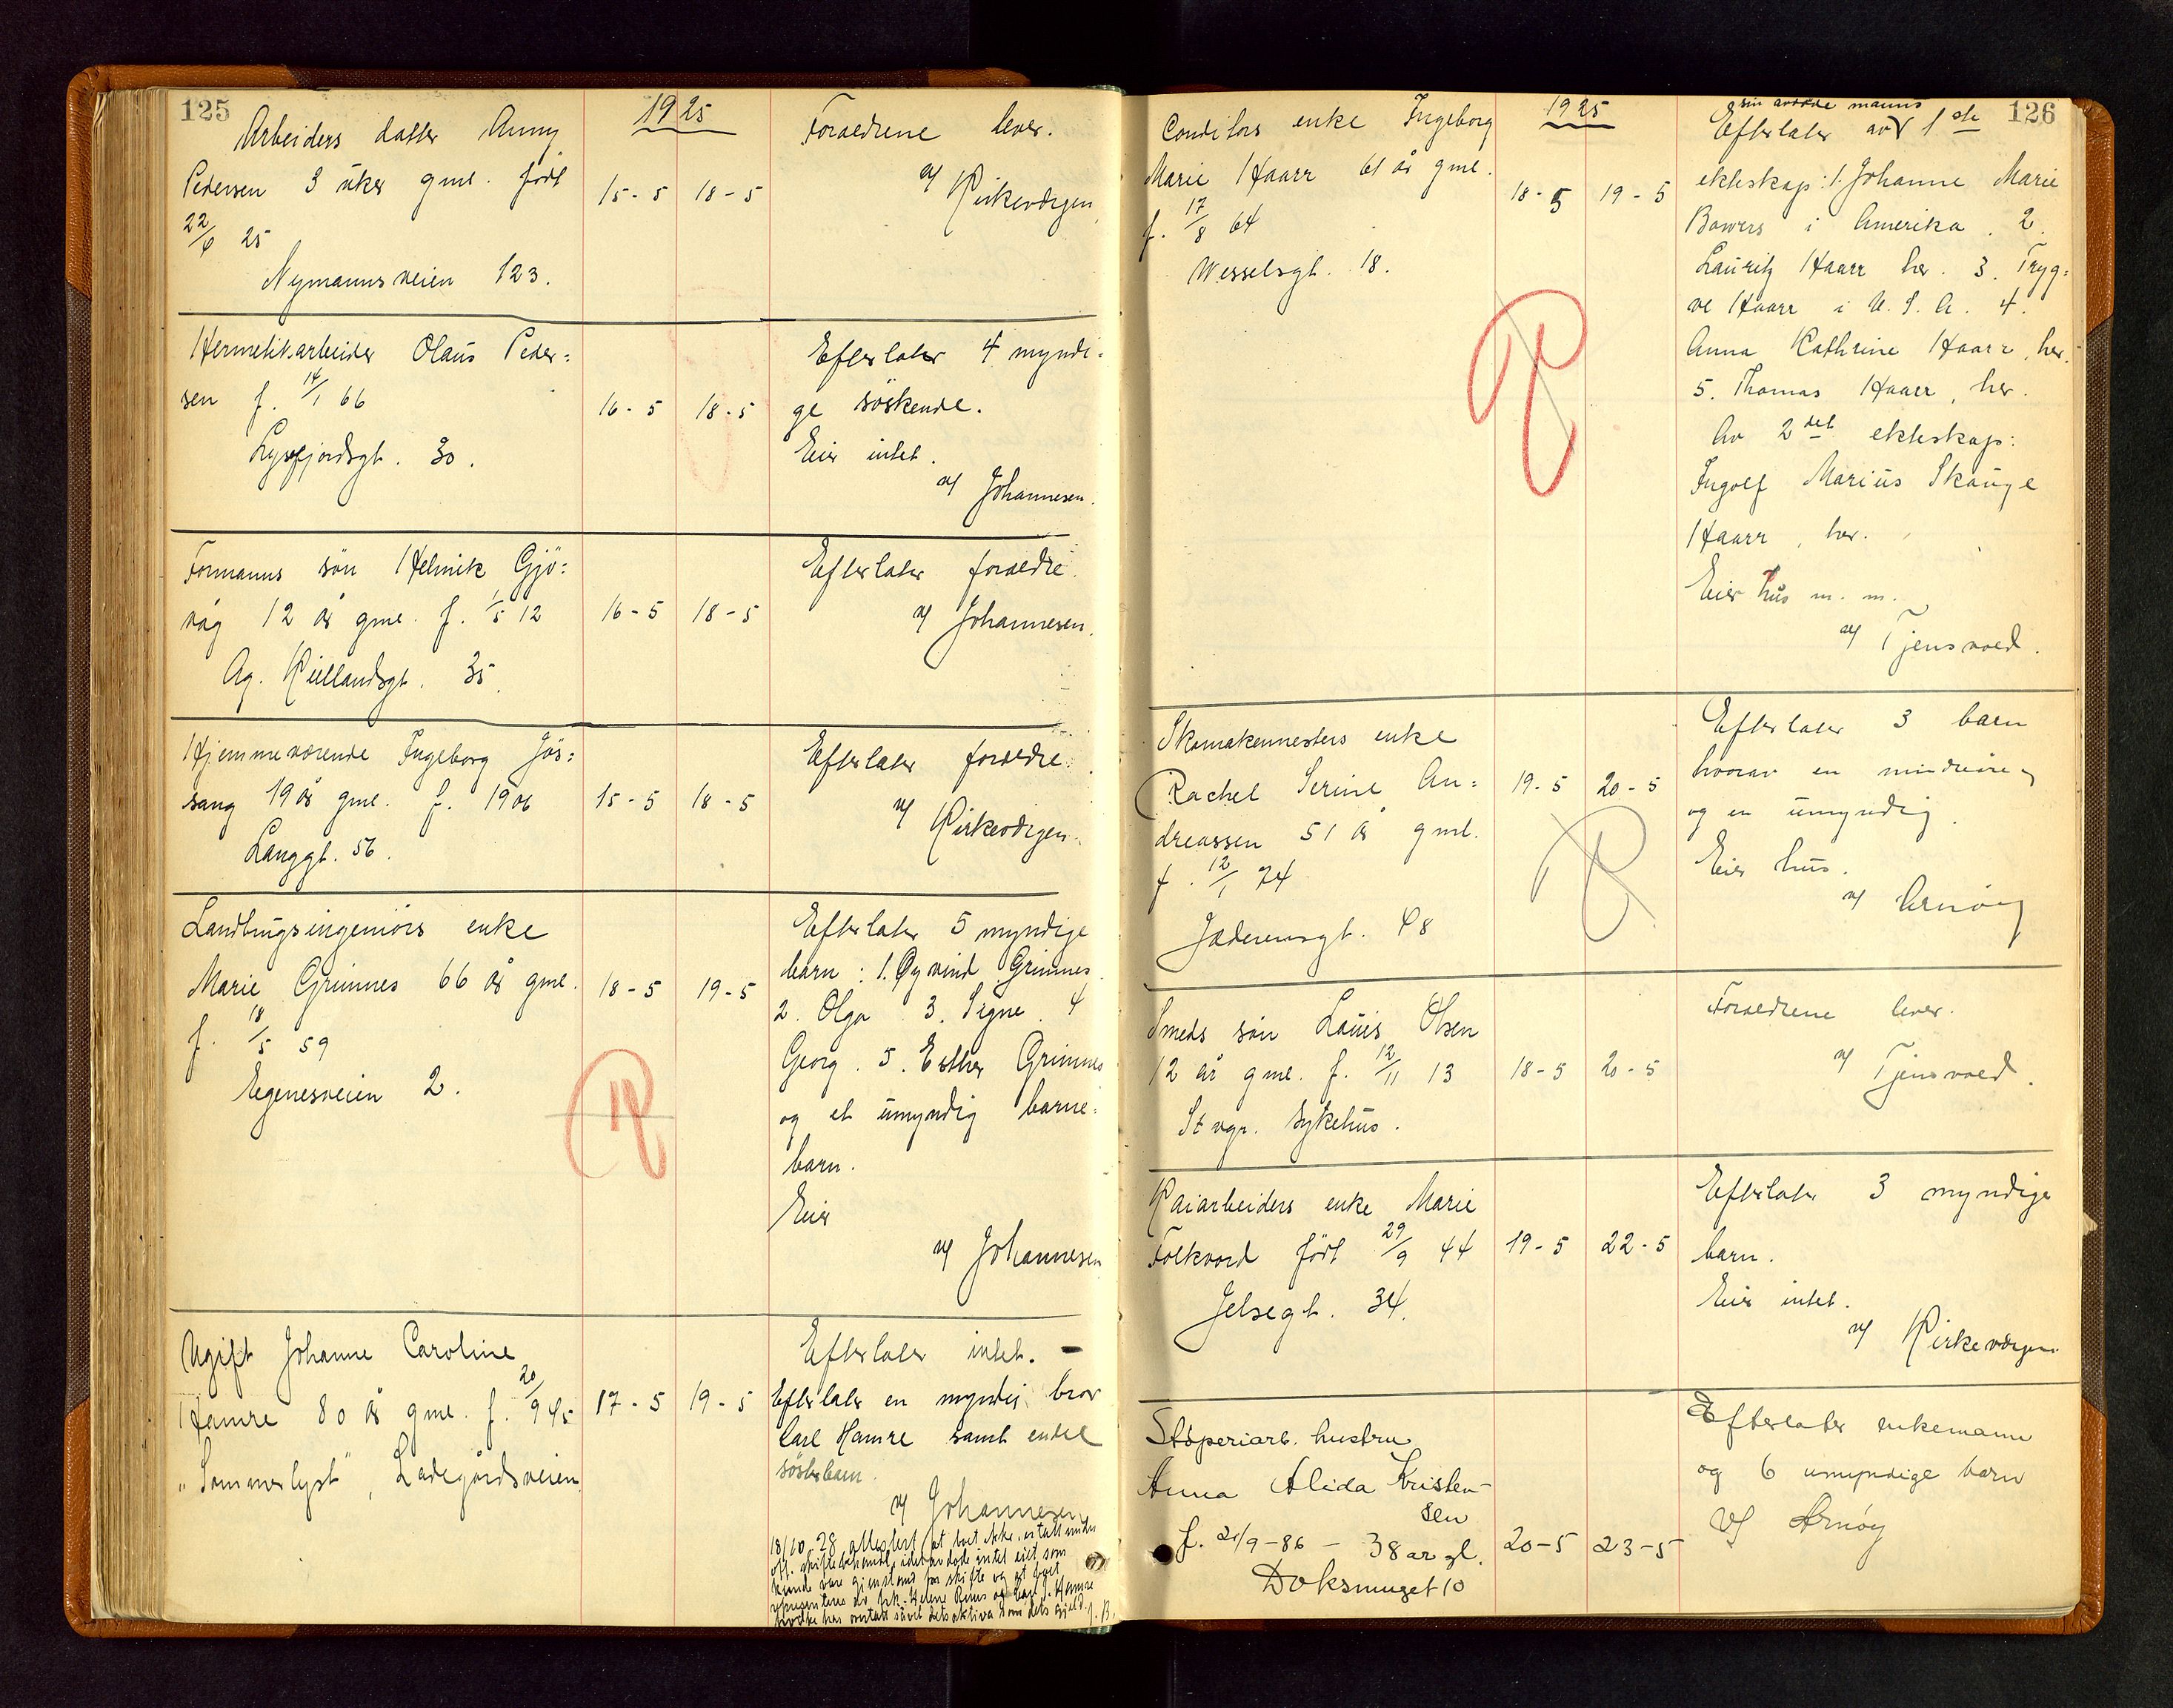 125
1925
Arbeiders datter Anny
Pedersen 3 uker gml. født
22/4 25
Nymannsveien 123.
15-5 18-5
Foraeldrene lever.
v/ Kirkevergen
Hermetikarbeider Olaus Peder=
sen f. 14/1 66
Lysefjordsgt. 30.
16-5 18-5
Efterlater 4 myndi=
ge søskende.
Eier intet.
v/ Johannesen.
Formanns søn Helmik Gjö=
våg 12 år gml. f. 1/5 12
Ag. Kiellandsgt. 35.
16-5 18-5
Efterlater foraeldre.
v/ Johannesen.
Hjemmeværende Ingeborg Jös=
sang 19 år gml. f. 1906
Langgt. 56.
15-5 18-5
Efterlater foraeldre.
v/ Kirkevergen.
Landbrugsingeniörs enke
Marie Grimnes 66 år gml.
f. 18/5 59
Egenesveien 2.
18-5 19-5
Efterlater 5 myndige
barn: 1. Øyvind Grimnes
2. Olga 3. Signe. 4
Georg. 5. Esther Grimnes
og et umyndig barne=
barn.
Eier
v/ Johannesen
Ugift Johanne Caroline
Hamre 80 år gml. f. 20/9 45
"Sommerlyst", Ladegårdsveien
17-5 19-5
Efterlater intet. -
Efterlater en myndig bror
Carl Hamre samt endel
søsterbarn.
v/ Johannesen
18/10-28 attestert at boet ikke er tatt under
off. skiftebehandl. idet avdøde intet eiet som
kunde være gjenstand for skifte og at boet
representeres av frk. Helene Reins og Carl J. Hamre
hvilke har overtatt såvel dets aktiva som dets gjeld. J.B.
126
1925
Conditors enke Ingeborg
Marie Haarr 61 år gml.
f. 17/8 64
Wesselsgt. 18.
18-5 19-5
sin avdøde manns
Efterlater av 1ste
ekteskap: 1. Johanne Marie
Bowers i Amerika. 2.
Lauritz Haarr her. 3. Tryg=
ve Haarr i U.S.A. 4.
Anna Kathrine Haarr, her.
5. Thomas Haarr, her.
Av 2det ekteskap:
Ingolf Marius Skauge
Haarr, her.
Eier hus m. m.
v/ Tjensvold.
Skomakermesters enke
Rachel Serine An=
dreassen 51 år gml.
f. 12/1 74
Jaderensgt. 48
19-5 20-5
Efterlater 3 barn
hvorav en mindreårig
og en umyndig.
Eier hus.
v/ Arnøy
Smeds søn Lauis Olsen
12 år gml. f. 12/11 13
Stvgr. sykehus.
18-5 20-5
Foraeldrene lever.
v/ Tjensvold.
Kaiarbeiders enke Marie
Folkvord født 29/9 44
Jelsegt. 34.
19-5 22-5
Efterlater 3 myndige
barn.
Eier intet.
v/ Kirkevergen
Støperiarb. hustru
Anna Alida Kristen-
sen
f. 21/9-86 - 38 år gl.
Doksmuget 10
20-5 23-5
Efterlater enkemann
og 6 umyndige barn
v/ Arnøy